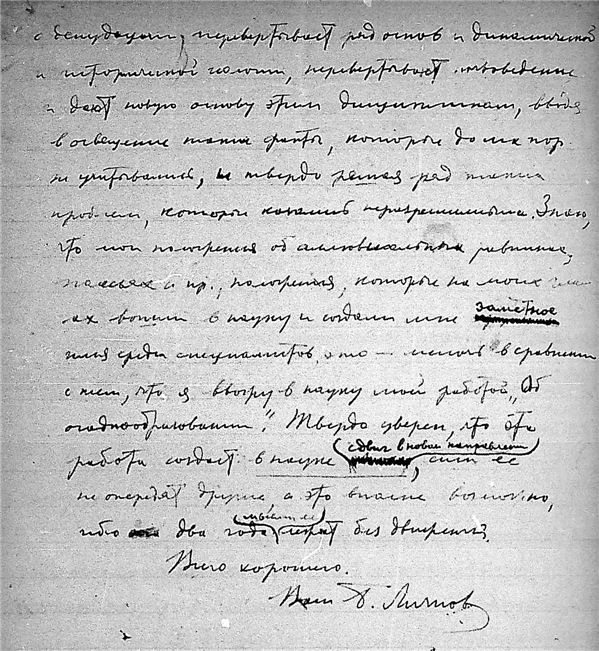 с денудацией, перевертывает ряд основ и динамической
и исторической геологии, перевертывает
и дают новую основу этим дисциплинам, вводя
в освещение такие факты, которые до сих пор
не учитывались, и твердо решая ряд таких
проблем, которые казались неразрешимыми. Знаю,
что мои положения об аллювиальных равнинах,
и пр., положения, которые на моих гла-
ах вошли в науку и создали мне заметное
имя среди специалистов, это — мелочь в сравнении
с тем, что я ввожу в науку моей работой „Об
осадкообразовании". Твердо уверен, что эта
работа создаст в науке сдвиг в новом направлении, если ее
не опередят другие а это вполне возможно,
ибо два года мысли ее лежат без движения.
Всего хорошего.
Ваш Б. Личков